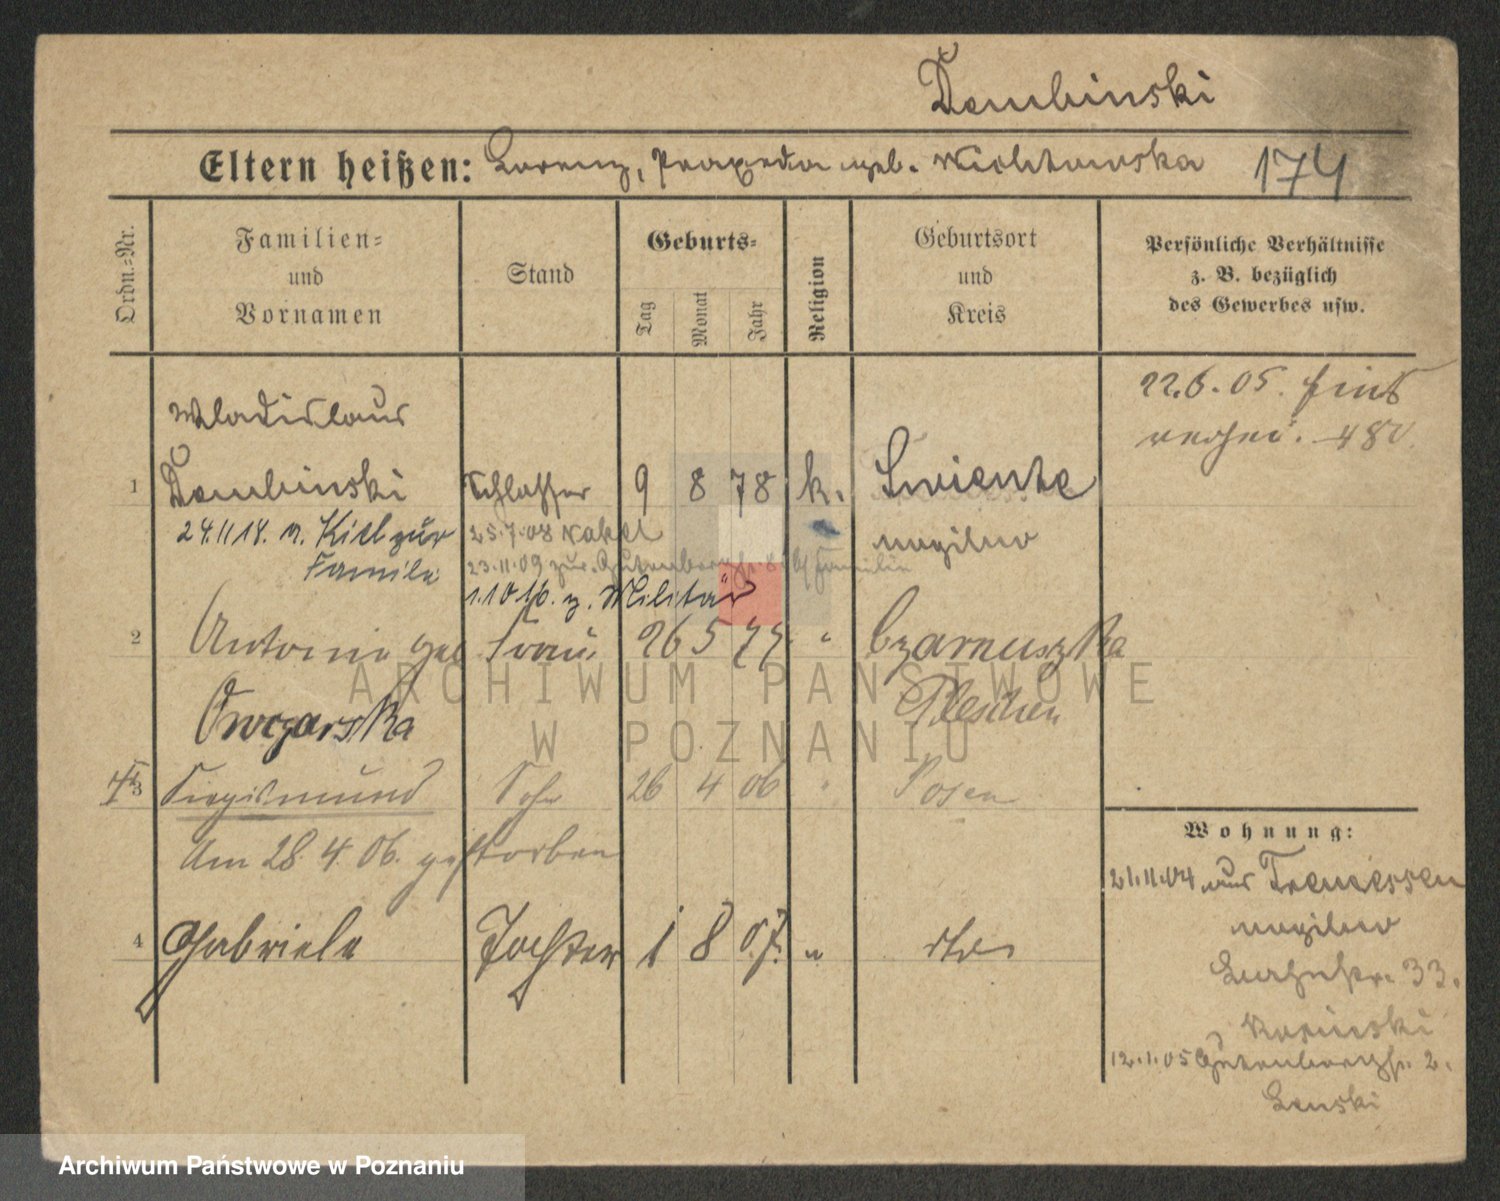 Dembinski
Eltern heißen: Lorenz, Praxeda geb. Wichtowska 174
Ordn.-Nr.
Familien-
und
Vornamen
Stand
Geburts-
Tag
Monat
Jahr
Religion
Geburtsort
und
Kreis
Persönliche Verhältnisse
z. B. bezüglich
des Gewerbes usw.
22.6.05.
480
Wladislaus
1 Dembinski Schlosser 9 8 78 k. Swiente
24.11.18. v. Kiel zur 25.7.08 Nakel Mogilno
Familie 23.11.09 zur. Gutenbergstr. Familie
1.10.16. z. Militär
2 Antonie geb Frau 26 5 77 " Czarnuszka
Owczarska Pleschen
3 Siegismund Sohn 26 4 06 " Posen
Am 28. 4. 06. gestorben
4 Gabriele Tochter 1 8 07. " dto
Wohnung:
21.11.04 aus Tremessen
Mogilno
33.
12.1.05 Gutenbergstr. 2.
Lenski
ARCHIWUM PAŃSTWOWE
W POZNANIU
Archiwum Państwowe w Poznaniu